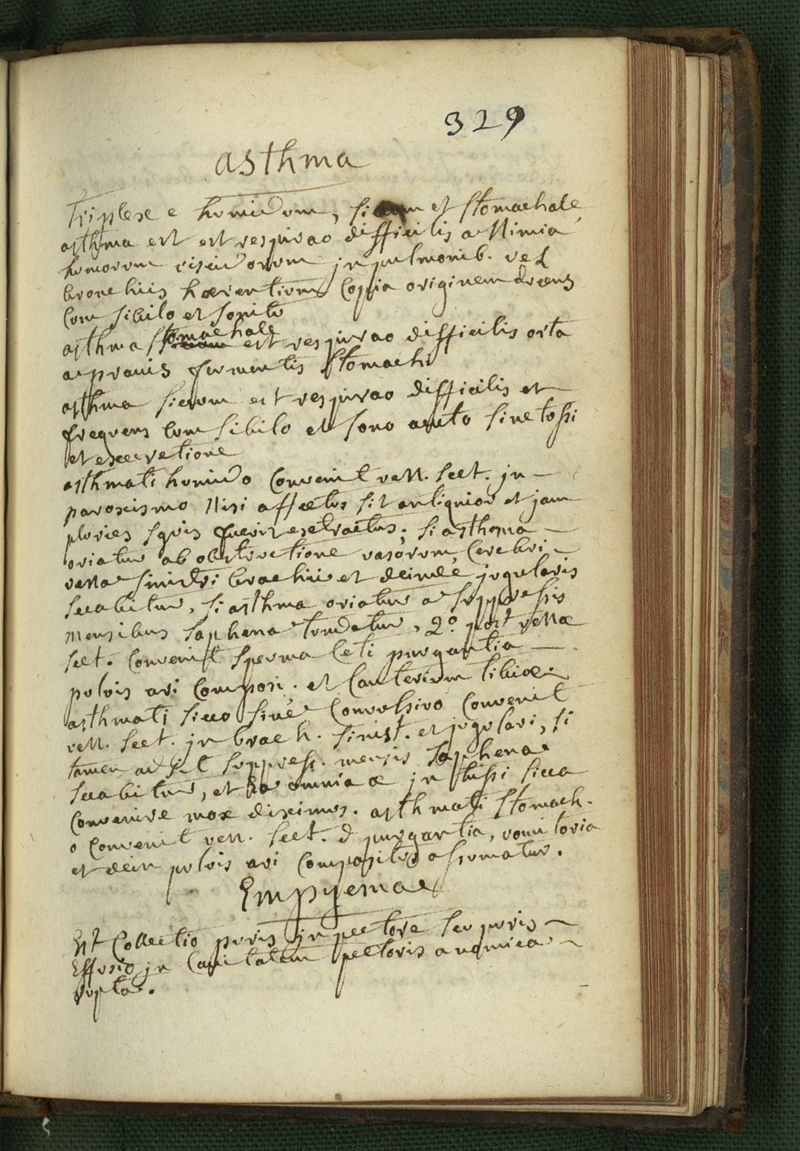 329
asthma
Triplex e humidum, siccum et stomachale,
asthma est est respirao difficilis a Nimia
humorum viscidorum in pulmonib. vel
bronchiis hærentium Copia originem ducens
Cum sibilo et sonitu
asthma stomachale est respirao difficilis orta
a pravis fermentis stomachi
asthma siccum est respirao difficilis et
frequens Cum sibilo et sono acuto sine tussi
et excretione
asthmati humido Convenit ven. sect. in
paroxismo Nisi affectus sit antiquior et jam
pluries sguis fuerit extractus; si asthma
oriatur ab obstructione vasorum Cerebri
vena sinistri brachii et deinde jugularis
secabitur, si asthma oriatur a suppressis
mensibus saphena tundetur, 2.º post venæ
sect. Convenit sperma Ceti purgantia
pulvis ari Composi. et Cauterium tibiæ.
asthmati sicco sive Convulsivo Convenit
ven. sect. in brach. sinist. et jugulari, si
tamen suppress. mensis saphena
secabitur, et omnia æ in tussi sicca
Convenire mox diximus. asthmati stomach.
o Convenit ven. sect. purgantia, vomitoria
et dein pulvis ari Compositus assumatur.
Empyema
Est Collectio puris in pectore seu puris
Effusio in Cavitatem pectoris a vomica
rupta.